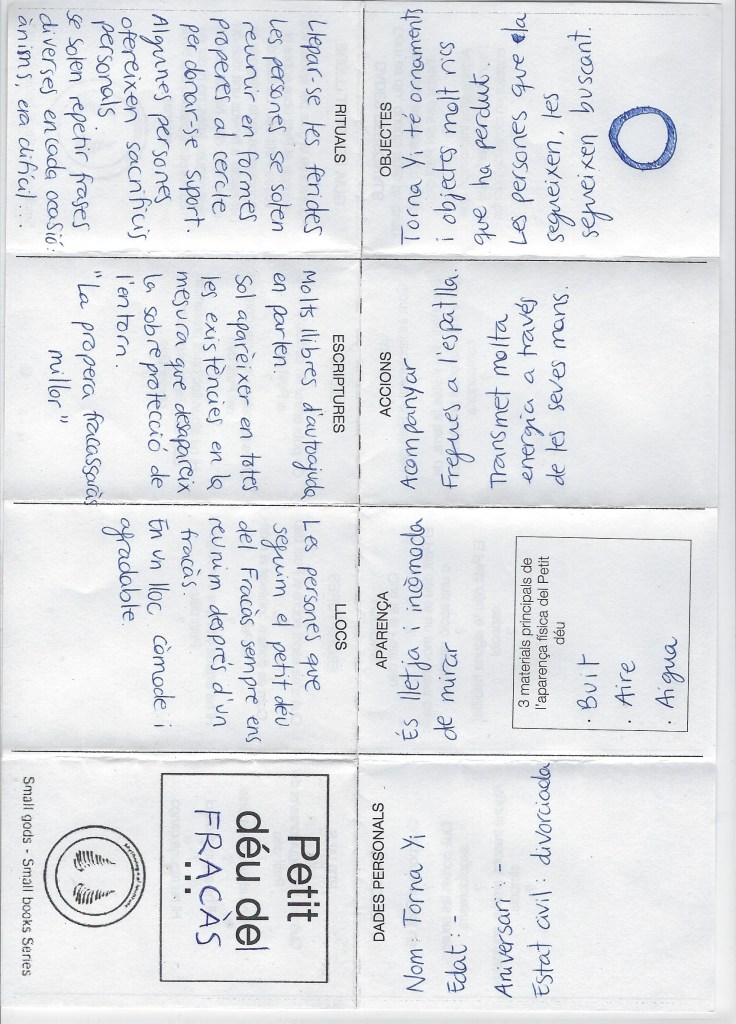 Small gods - Small books Series
Petit
déu del
...
FRACÀS
DADES PERSONALS
Nom: Torna Yi
Edat: -
Aniversari: -
Estat civil: divorciada
APARENÇA
És lletja i incòmoda
de mirar
3 materials principals de
l'aparença física del Petit
déu
· Buit
· Aire
· Aigua
ACCIONS
Acompanyar
Fregues a l'espatlla.
Transmet molta
energia a través
de les seves mans.
OBJECTES
Torna Yi té ornaments
i objectes molt rics
que ha perdut.
Les persones que la
segueixen, les
segueixen buscant.
RITUALS
Llepar-se les ferides
Les persones se solen
reunir en formes
properes al cercle
per donar-se suport.
Algunes persones
ofereixen sacrificis
personals
se solen repetir frases
diverses en cada ocasió:
ànims, era difícil...
ESCRIPTURES
Molts llibres d'autoajuda
en parlen.
Sol aparèixer en totes
les existències en la
mesura que desapareix
la sobreprotecció de
l'entorn.
"La propera fracassaràs
millor"
LLOCS
Les persones que
seguim el petit déu
del Fracàs sempre ens
reunim després d'un
fracàs.
En un lloc còmode i
agradable.